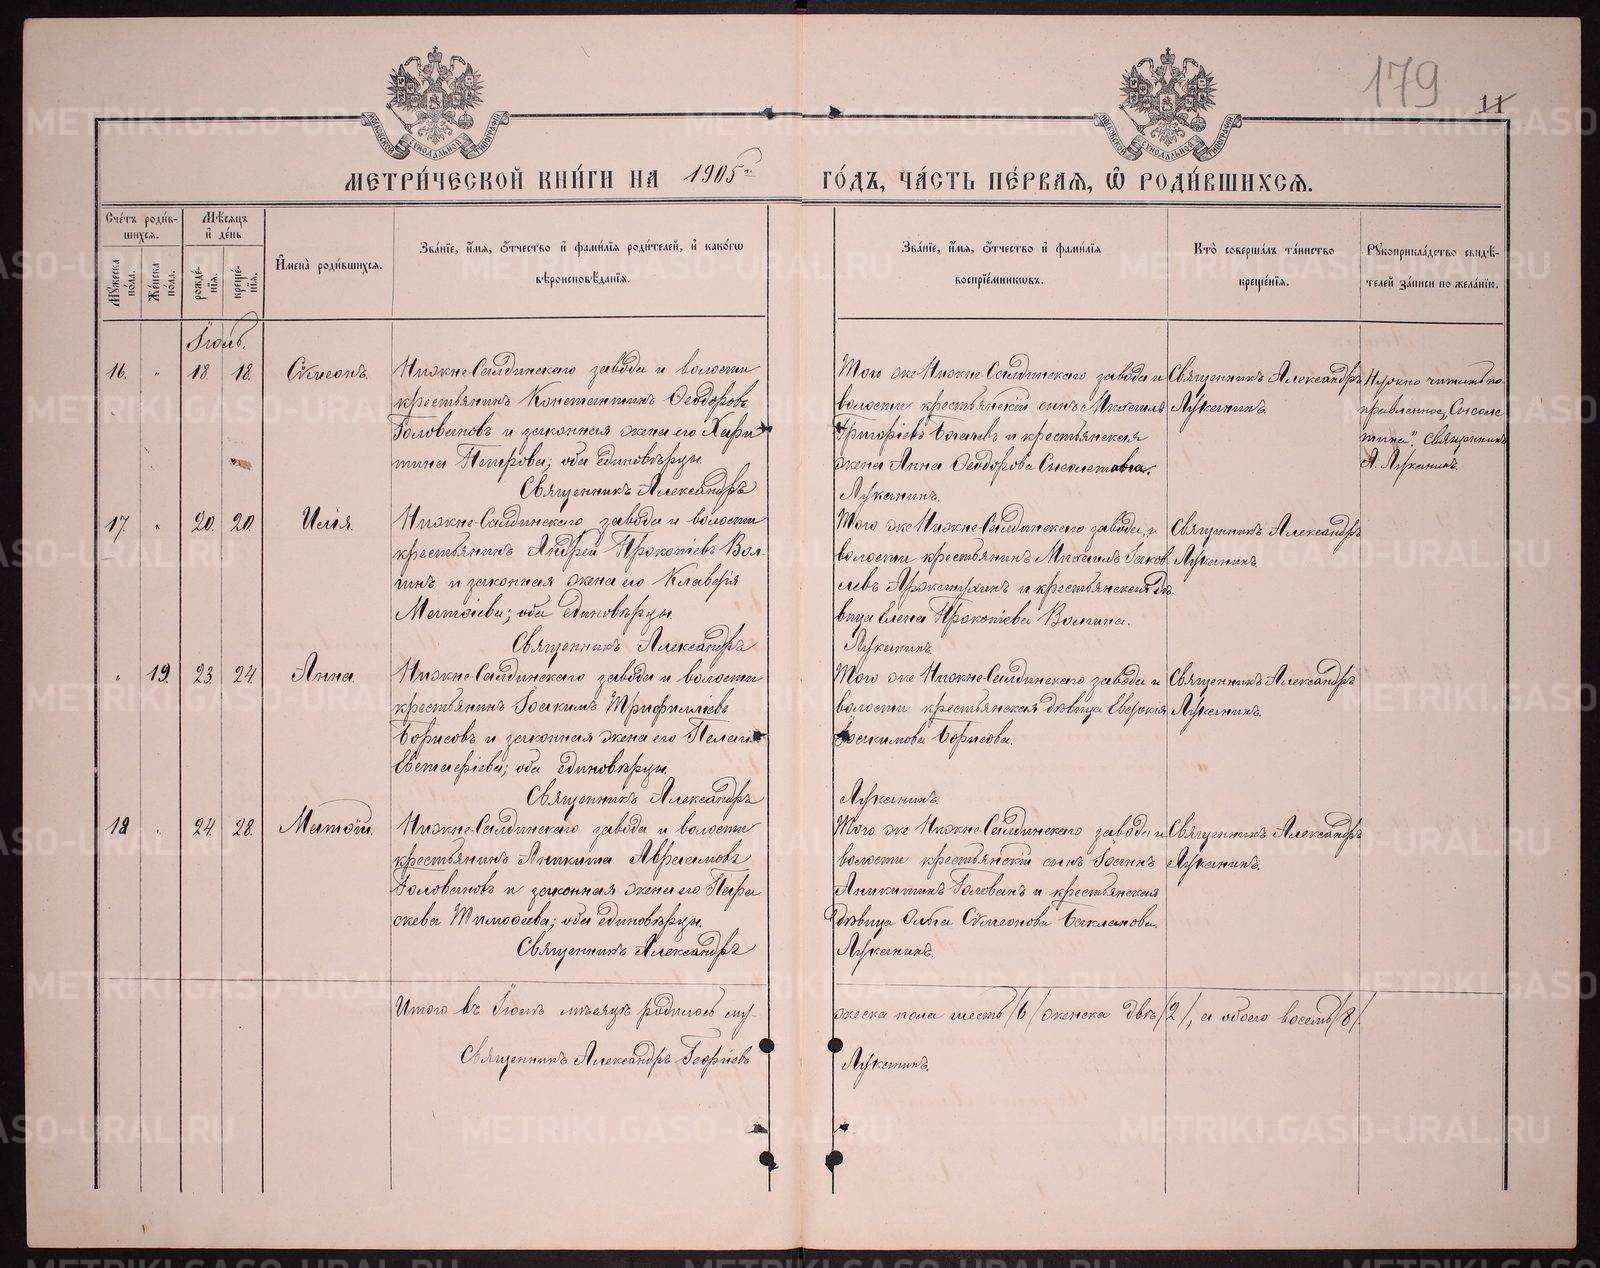 179
11
МЕТРИ́ЧЕСКОЙ КНИ́ГИ НА 1905й ГО́ДЪ, ЧА́СТЬ ПЕ́РВАѦ, Ѽ РОДИ́ВШИХСѦ.
Сче́тъ роди́вшихсѧ.
Мꙋжеска по́ла.
Же́нска по́ла.
Мѣ́сѧцъ и҆ де́нь
рожде́нїѧ.
креще́нїѧ.
И҆мена̀ роди́вшихсѧ.
Зва́нїе, и҆́мѧ, ѻ҆́тчество и҆ фами́лїѧ роди́телей, и҆ како́гѡ
вѣроисповѣ́данїѧ.
Зва́нїе, и҆́мѧ, ѻ҆́тчество и҆ фами́лїѧ
воспрїе́мникѡвъ.
Кто̀ соверша́лъ та́инство
креще́нїѧ.
Рꙋкоприкла́дство свидѣ́-
телей за́писи по жела́нїю.
Іюль.
16. „ 18. 18. Сѵмеонъ.
Нижне-Салдинскаго завода и волости
крестьянинъ Константинъ Ѳеодоровъ
Головановъ и законная жена его Хари-
тина Петрова; оба единовѣрцы.
Священникъ Александръ
Того же Нижне-Салдинскаго завода и
волости крестьянскій сынъ Михаилъ
Григоріевъ и крестьянская
жена Анна Ѳеодорова
Луканинъ.
Священникъ Александръ
Луканинъ.
Нужно читать по-
правленное
Священникъ
А. Луканинъ.
17. „ 20. 20. Илія.
Нижне-Салдинскаго завода и волости
крестьянинъ Андрей Прокопіевъ Вол-
гинъ и законная жена его Клавдія
Матѳіева; оба единовѣрцы.
Священникъ Александръ
Того же Нижне-Салдинскаго завода и
волости крестьянинъ Михаилъ Іаков-
левъ и крестьянская дѣ-
вица Елена Прокопіева Волгина.
Луканинъ.
Священникъ Александръ
Луканинъ.
„ 19. 23 24 Анна.
Нижне-Салдинскаго завода и волости
крестьянинъ Іоакимъ Трифилліевъ
Борисовъ и законная жена его Пелагія
Евстафіева; оба единовѣрцы.
Священникъ Александръ
Того же Нижне-Салдинскаго завода и
волости крестьянская дѣвица Евдокія
Іоакимова Борисова.
Луканинъ.
Священникъ Александръ
Луканинъ.
18 „ 24. 28. Матѳій.
Нижне-Салдинскаго завода и волости
крестьянинъ Аникита Авраамовъ
Головановъ и законная жена его Пара-
скева Тимоѳеева; оба единовѣрцы.
Священникъ Александръ
Того же Нижне-Салдинскаго завода и
волости крестьянскій сынъ Іоаннъ
Аникитинъ Головань и крестьянская
дѣвица Ольга Сѵмеонова Бакланова.
Луканинъ.
Священникъ Александръ
Луканинъ.
Итого въ Іюлѣ мѣсяцѣ родилось му-
жеска пола шесть /6/ женска двѣ /2/, а обоего восемь /8/.
Священникъ Александръ Георгіевъ
Луканинъ.
METRIKI.GASO-URAL.RU